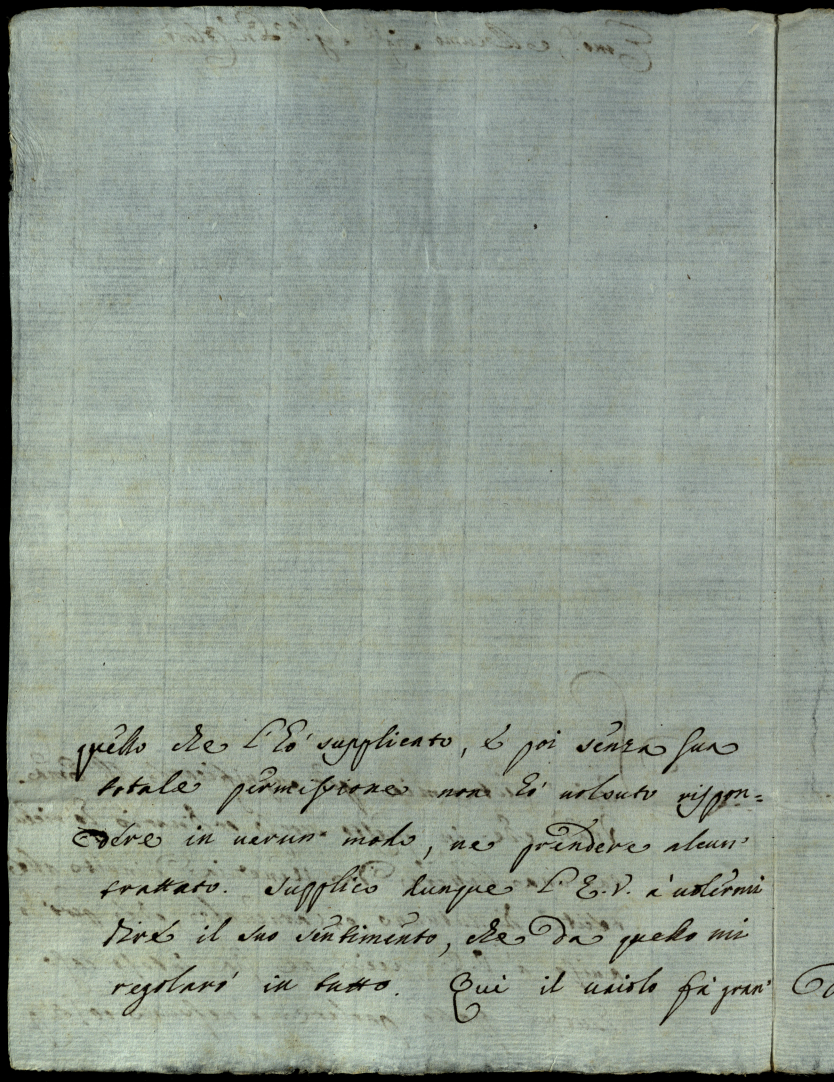 quello che l'hò supplicato, e poi senza sua
totale permissione non hò uolsuto rispon=
dere in uerun modo, ne prendere alcun
trattato. Supplico dunque l'E.V. à uolermi
dire il suo sentimento, che da quello mi
regolarò in tutto. Qui il uaiolo fà gran'